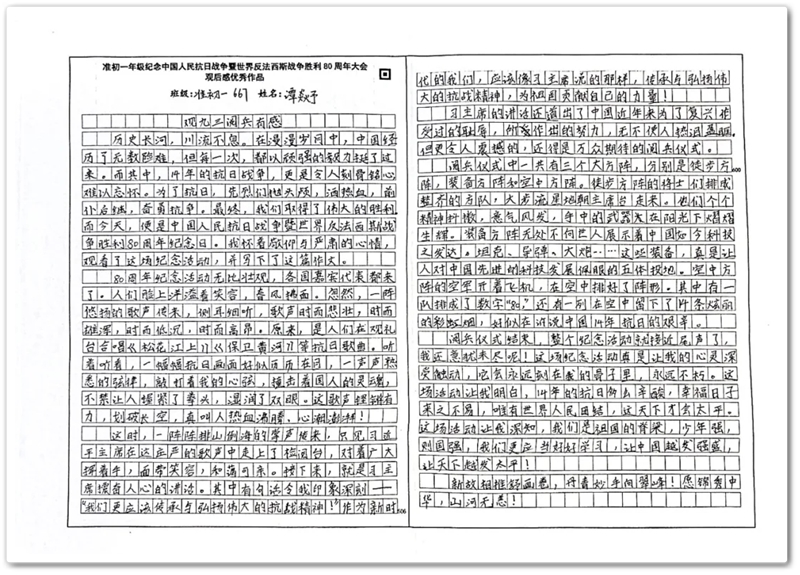 准初一年级纪念中国人民抗日战争暨世界反法西斯战争胜利80周年大会
观后感优秀作品
班级:准初一667 姓名:谭
观九三阅兵有感
历史长河,川流不息。在漫漫岁月中,中国经
历了无数磨难,但每一次,都以顽强的毅力挺了过
来。而其中,14年的抗日战争,更是令人刻骨铭心
难以忘怀。为了抗日,先烈们抛头颅,洒热血,前
仆后继,奋勇抗争。最终,我们取得了伟大的胜利。
而今天,便是中国人民抗日战争暨世界反法西斯战
争胜利80周年纪念日。我怀着敬仰与严肃的心情,
观看了这场纪念活动,并写下了这篇作文。
80周年纪念活动无比壮观,各国嘉宾代表都来
了。人们脸上洋溢着笑容,春风拂面。忽然,一阵
悠扬的歌声传来,侧耳细听,歌声时而悲壮,时而
雄浑,时而低沉,时而高昂。原来,是人们在观礼
台合唱《松花江上》《保卫黄河》等抗日歌曲。听
着听着,一幅幅抗日画面好似历历在目,一声声熟
悉的弦律,敲打着我的心弦,撞击着国人的灵魂,
不禁让人攥紧了拳头,湿润了双眼。这歌声铿锵有
力,划破长空,真叫人热血沸腾、心潮澎湃!
这时,一阵阵排山倒海的掌声传来,只见习近
平主席在这庄严的歌声中走上了检阅台,对着广大
挥着手,面带笑容,和蔼可亲。接下来,就是习主
席振奋人心的讲话。其中有句话令我印象深刻——
“我们更应该传承与弘扬伟大的抗战精神!”作为新时
代的我们,应该像习主席说的那样,传承与弘扬伟
大的抗战精神,为祖国贡献自己的力量!
习主席的讲话还道出了中国近年来为了复兴祖
受过的耻辱,所我作出的努力,无不使人热泪盈眶。
但更令人震撼的,还得是万众期待的阅兵仪式。
阅兵仪式中一共有三个大方阵,分别是徒步方
阵,装备方阵和空中方阵。徒步方阵的将士们排成
整齐的方队,大步流星地朝主席台走来。他们个个
精神抖擞,意气风发,手中的武器在阳光下熠熠
生辉。装备方阵无处不向世人展示着中国如今科技
之发达。坦克、导弹、大炮……这些装备,真是让
人对中国先进的科技发展佩服的五体投地。空中方
阵的空军开着飞机,在空中排好了阵形。其中有一
队排成了数字“80”,还有一列在空中留下了14条炫丽
的彩虹烟,好似在诉说中国14年抗日的艰辛。
阅兵仪式结束,整个纪念活动就接近尾声了,
我还意犹未尽呢!这场纪念活动真是让我的心灵深
受触动,它会永远刻在我的骨子里,永远不朽。这
场活动让我明白,14年的抗日那么辛酸,幸福日子
来之不易,唯有世界人民团结,这天下才会太平。
这场活动让我深知,我们是祖国的脊梁,少年强,
则国强,我们更应当好好学习,让中国越发强盛,
让天下越发太平!
新故相推舒画卷,丹青妙手向翠峰!愿锦秀中
华,山河无恙!